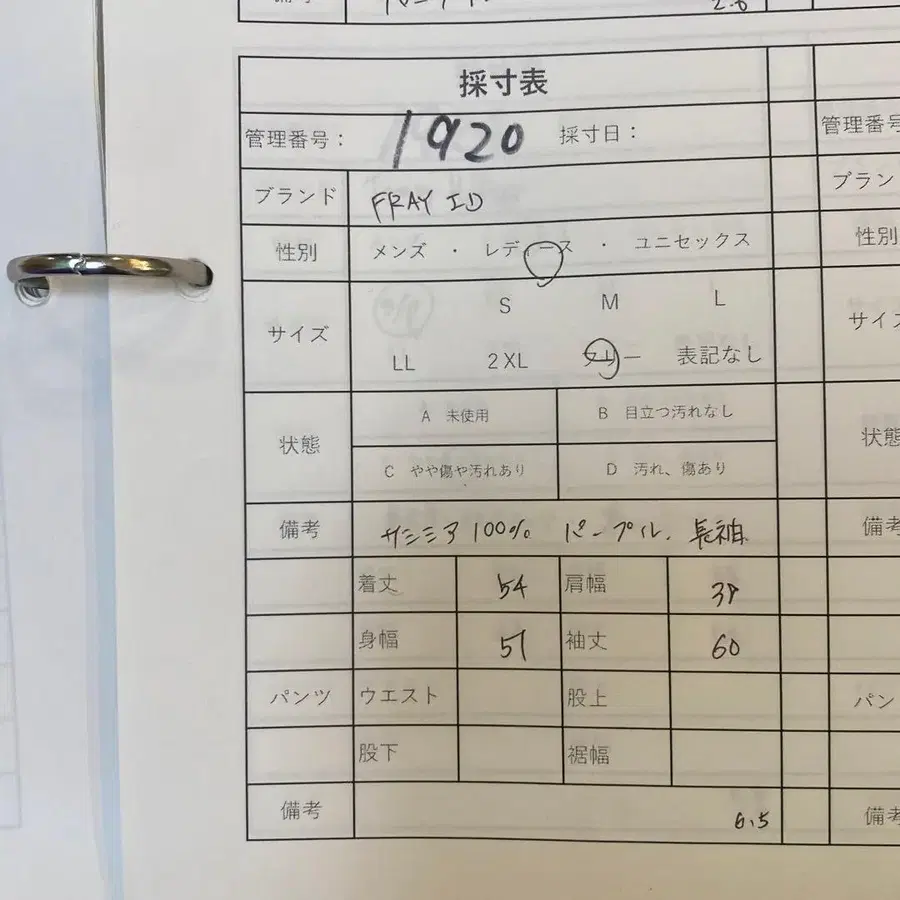 採寸表
管理番号： 1920 採寸日：
ブランド FRAY ID
性別 メンズ ・ レディース ・ ユニセックス
サイズ S M L
LL 2XL フリー 表記なし
状態 A 未使用 B 目立つ汚れなし
C やや傷や汚れあり D 汚れ、傷あり
備考 カシミア 100% パープル. 長袖
着丈 54 肩幅
身幅 51 袖丈 60
パンツ ウエスト 股上
股下 裾幅
備考 6.5
管理番号
ブラン
性別
サイズ
状態
備考
パン
備考